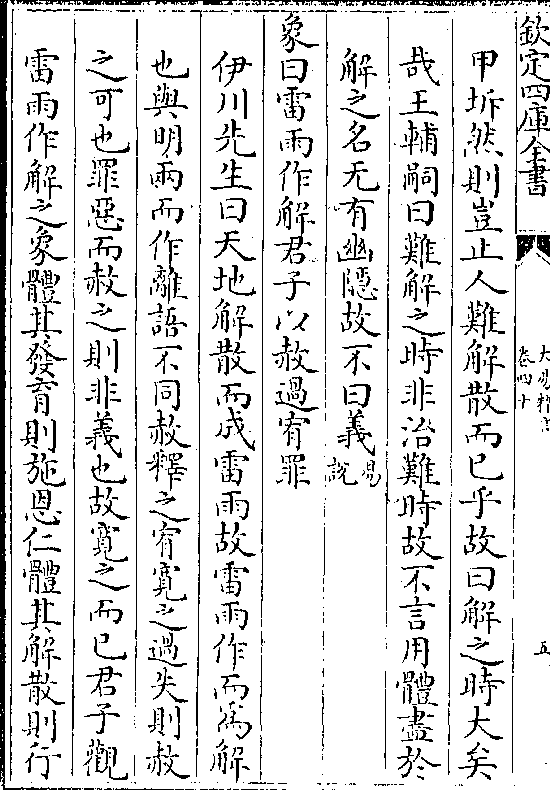 欽定四庫全書
大易粹言
卷四十
五
甲坼然則豈止人難解散而已乎故曰解之時大矣
哉王輔嗣曰難解之時非治難時故不言用體盡於
解之名无有幽隱故不曰義易說
象曰雷雨作解君子以赦過宥罪
伊川先生曰天地解散而成雷雨故雷雨作而為解
也與明兩而作離語不同赦釋之宥寛之過失則赦
之可也罪惡而赦之則非義也故寛之而已君子觀
雷雨作解之象體其發育則施恩仁體其解散則行